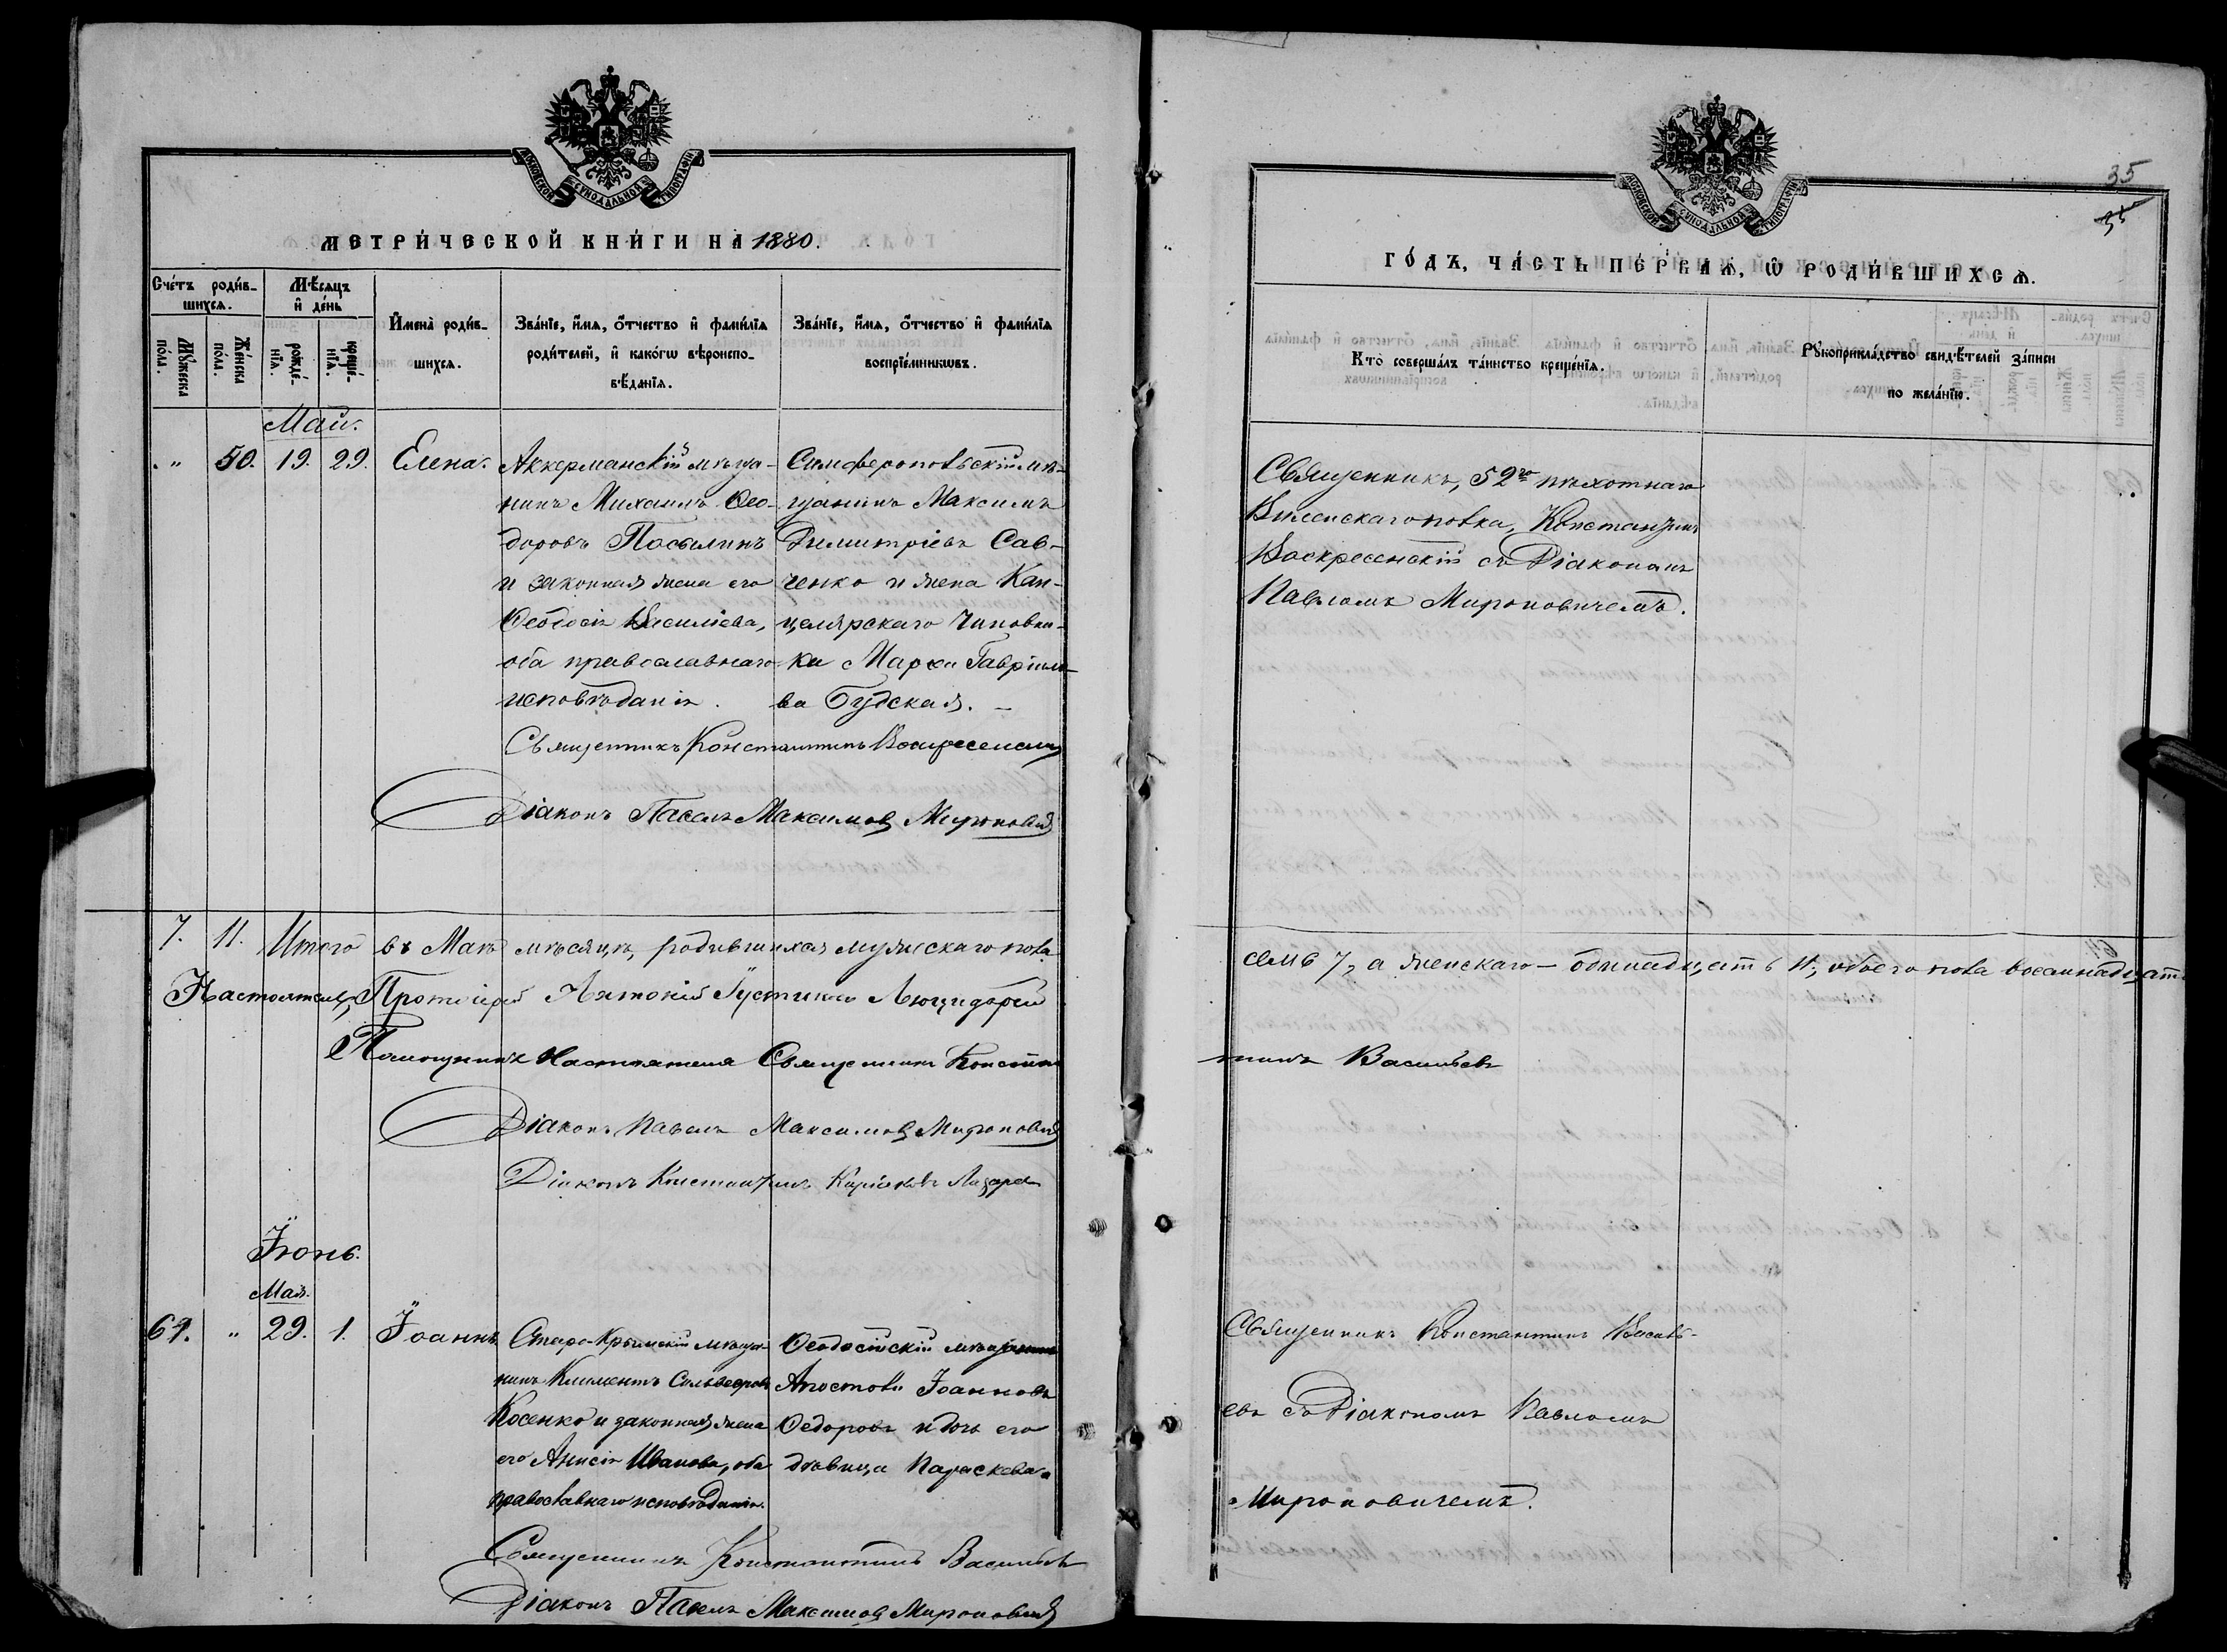 МОСКОВСКОЙ СѴНОДАЛЬНОЙ ТИПОГРАФІИ
МЕТРИЧЕСКОЙ КНИГИ НА 1880.
Счетъ родив-
шихся.
Мѣсяцъ
и день
Мужеска
пола.
Женска
пола.
рожде-
нія.
креще-
нія.
Имена родив-
шихся.
Званіе, имя, отчество и фамилія
родителей, и какогѡ вѣроиспо-
вѣданія.
Званіе, имя, отчество и фамилія
воспріемникѡвъ.
Май.
" 50. 19. 29. Елена.
Аккерманскій мѣща-
нинъ Михаилъ Ѳео-
доровъ Посылинъ
и законная жена его
Ѳеодосія Василіева,
оба православнаго
исповѣданія.
Симферопольскій мѣ-
щанинъ Максимъ
Димитріевъ Сав-
ченко и жена Кан-
целярскаго Чиновни-
ка Марѳа Гавріило-
ва Будская. –
Священникъ Константинъ Воскресенскій
Діаконъ Павелъ Максимовъ Мироновичъ
7. 11. Итого въ Маѣ мѣсяцѣ, родившихся мужескаго пола
Настоятель, Протоіерей Антоній
Помощникъ Настоятеля Священникъ Констан
Діаконъ Павелъ Максимовъ Мироновичъ
Діаконъ Константинъ
Іюнь.
Мая.
61. " 29. 1. Іоаннъ.
Старо-Крымскій мѣща-
нинъ Климентъ
Косенко и законная жена
его Анисія Иванова, оба
православнаго исповѣданія.
Ѳеодосійскій мѣщанинъ
Апостолъ Іоанновъ
Ѳедоровъ и дочь его
дѣвица Параскева.
Священникъ Константинъ Васильевъ
Діаконъ Павелъ Максимовъ Мироновичъ
35
35
МОСКОВСКОЙ СѴНОДАЛЬНОЙ ТИПОГРАФІИ
ГОДЪ, ЧАСТЬ ПЕРВАЯ, Ѡ РОДИВШИХСЯ.
Кто совершалъ таинство крещенія.
Рукоприкладство свидѣтелей записи
по желанію.
Священникъ, 52го пѣхотнаго
Виленскаго полка, Константинъ
Воскресенскій съ Діакономъ
Павломъ Мироновичемъ.
семь 7, а женскаго – одинадцать 11, обоего пола восемнадцать
тинъ Васильевъ
Священникъ Константинъ Василь-
евъ съ Діакономъ Павломъ
Мироновичемъ.